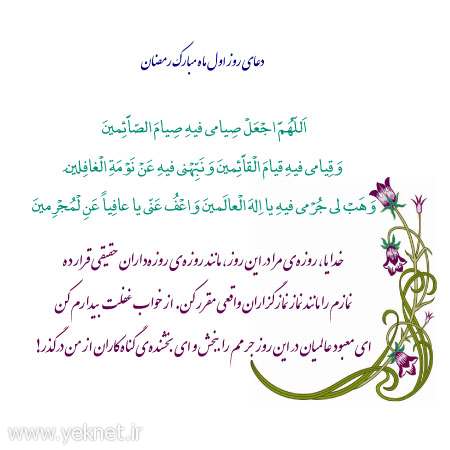 دعای روز اول ماه مبارک رمضان
اَللّهُمَّ اجْعَلْ صِیامی فیهِ صِیامَ الصّآئِمینَ
وَ قِیامی فیهِ قیامَ الْقآئِمینَ وَ نَبِّهْنی فیهِ عَنْ نَوْمَةِ الْغافِلینَ
وَ هَبْ لی جُرْمی فیهِ یا اِلهَ الْعالَمینَ وَ اعْفُ عَنّی یا عافِیاً عَنِ لْمُجْرِمینَ
خدایا، روزه‌ی مرا در این روز، مانند روزه‌ی روزه‌داران حقیقی قرار ده
نمازم را مانند نماز نمازگزاران واقعی مقرر کن. از خواب غفلت بیدارم کن
ای معبود عالمیان در این روز جرمم را ببخش و ای بخشنده‌ی گناه کاران از من درگذر!
www.yeknet.ir